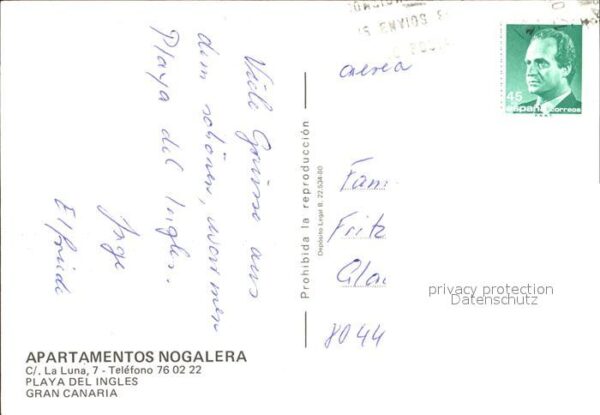 Viele Grüsse aus
dem schönen, warmen
Playa del Ingles.
Inge
Elfriede
Prohibida la reproducción
Depósito Legal B. 22.534-80
ENVIOS
aerea
45
españa correos
Fam.
Fritz
8044
privacy protection
Datenschutz
APARTAMENTOS NOGALERA
C/. La Luna, 7 - Teléfono 76 02 22
PLAYA DEL INGLES
GRAN CANARIA